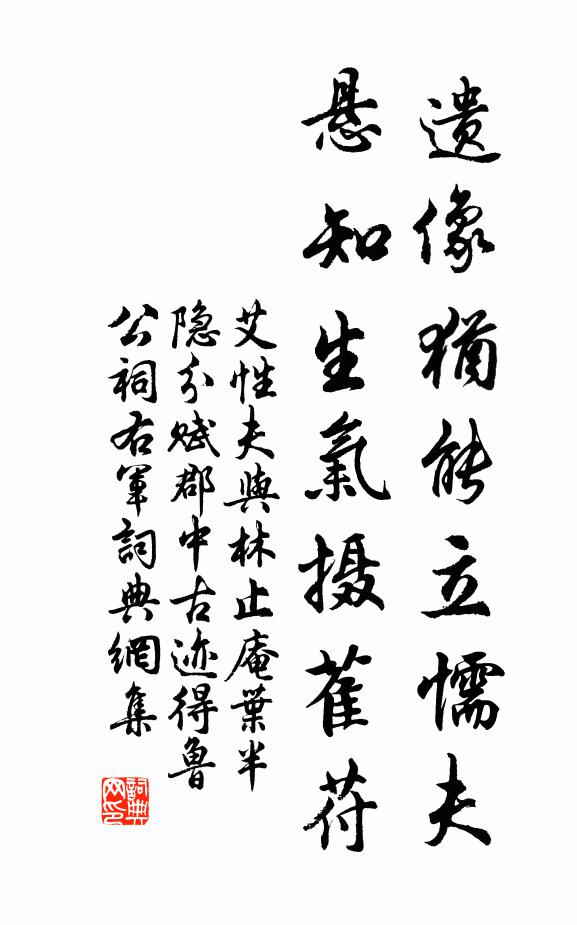 遗像猶能立懦夫
悬知生氣摄萑苻
艾性夫與林止庵葉半
隐分赋郡中古迹得魯
公祠右軍詞典網集
詞典网印